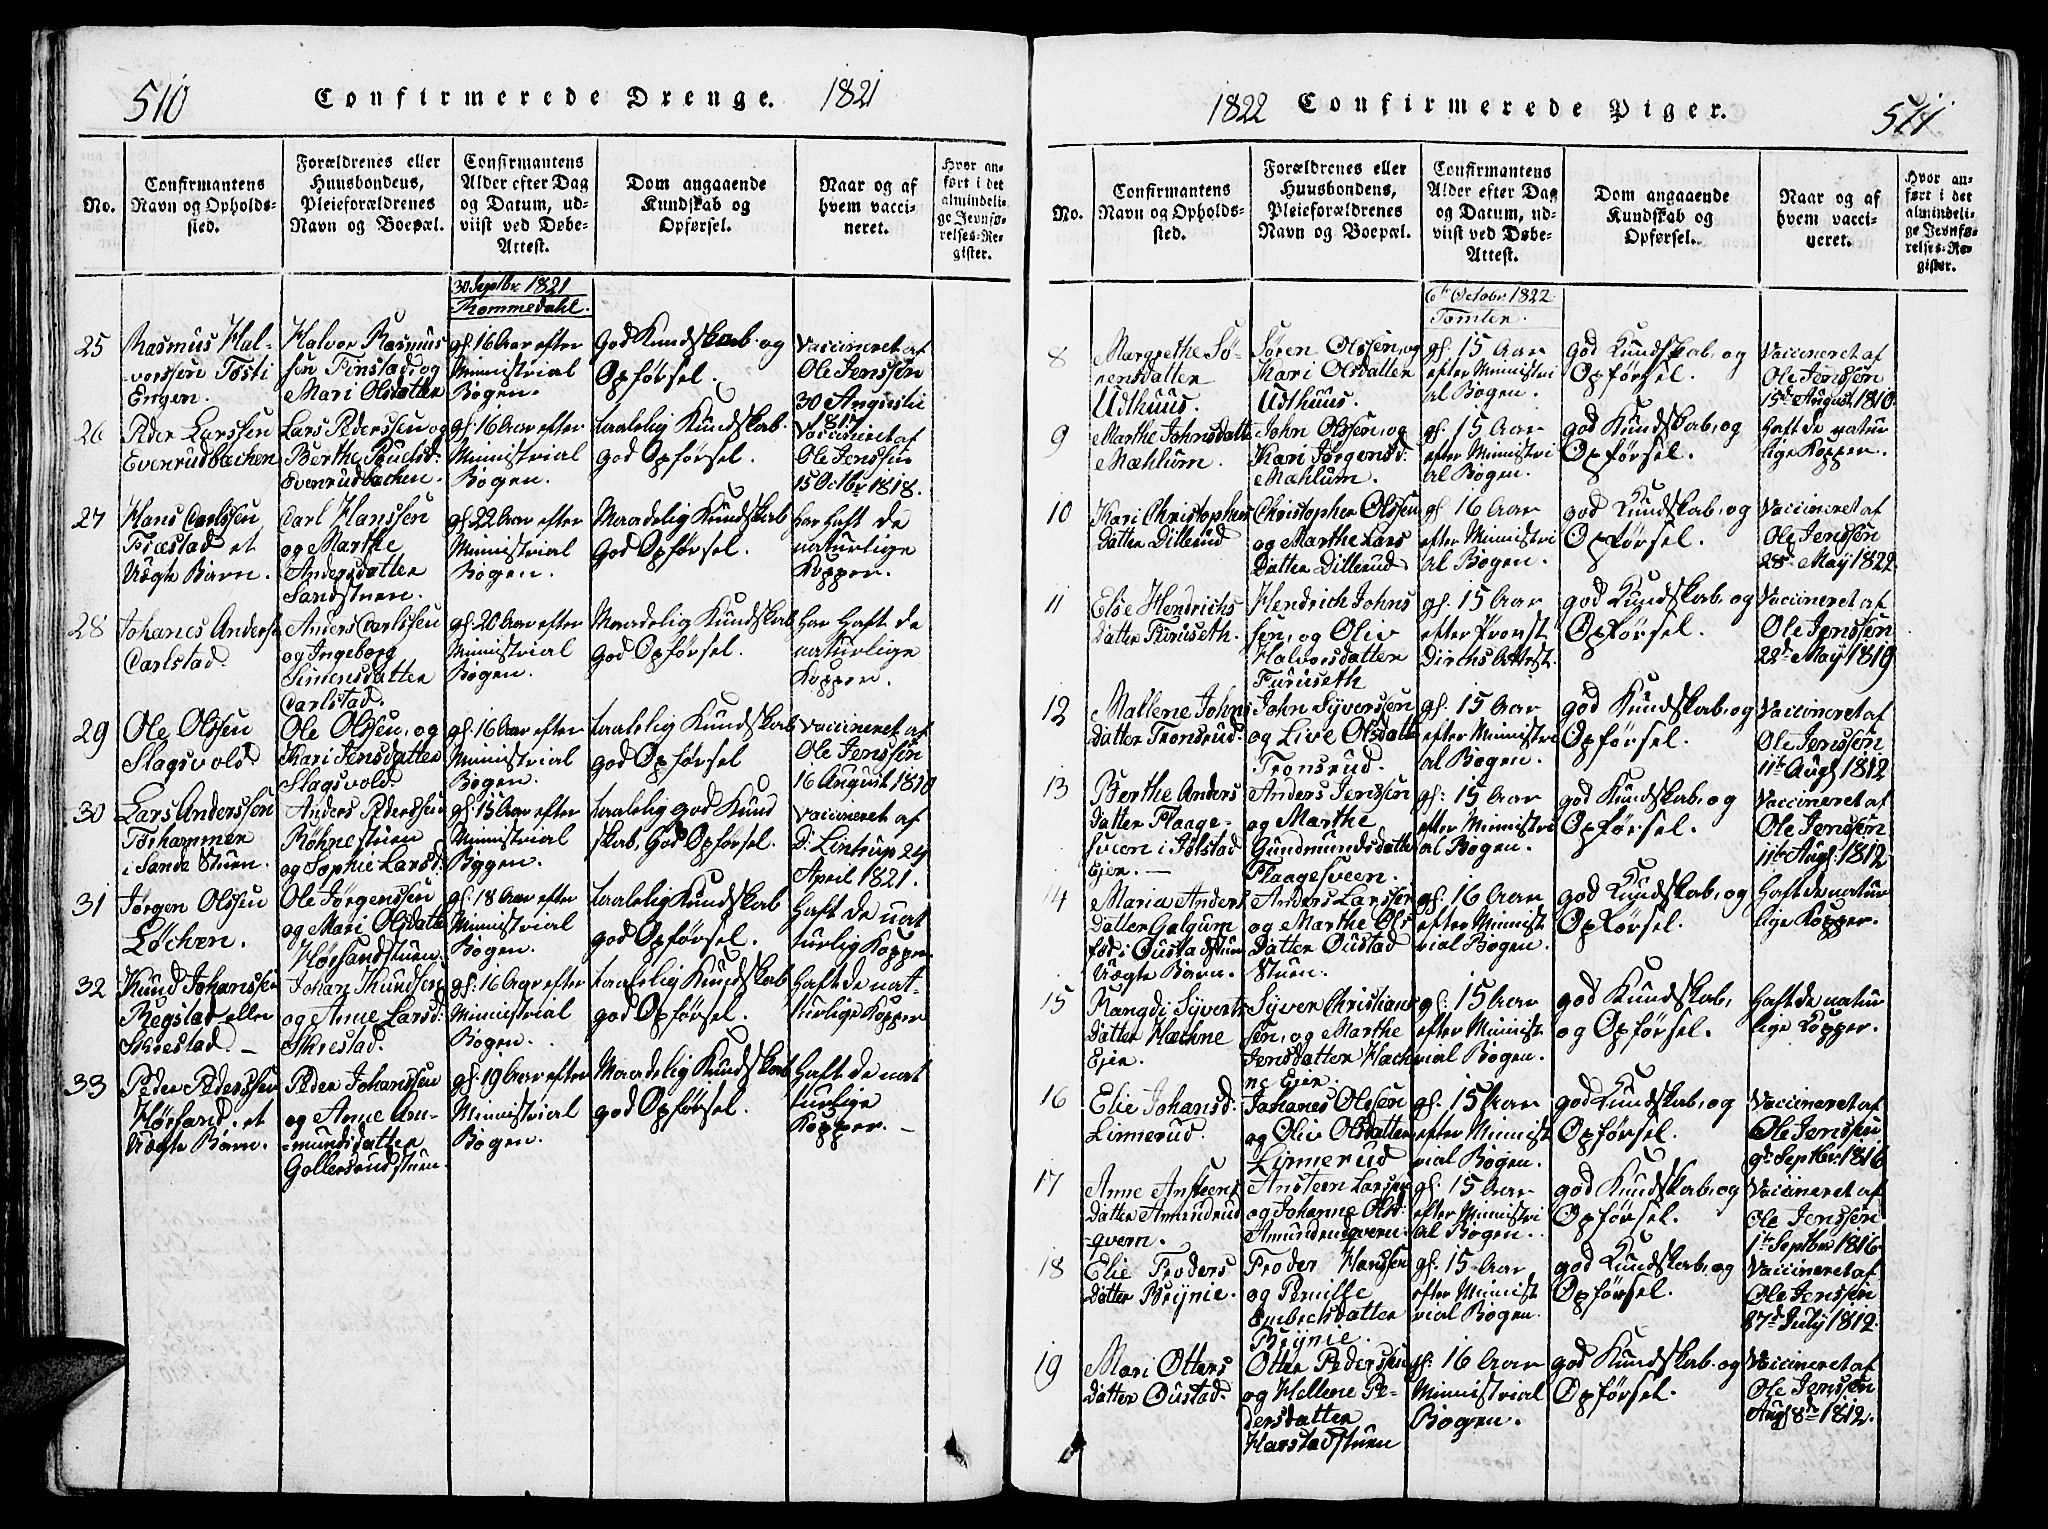 510
Confirmerede Drenge.
1821
No.
Confirmantens
Navn og Opholds-
sted.
Forældrenes eller
Huusbondens,
Pleieforældrenes
Navn og Boepæl.
Confirmantens
Alder efter Dag
og Datum, ud-
viist ved Døbe-
Attest.
Dom angaaende
Kundskab og
Opførsel.
Naar og af
hvem vacci-
neret.
Hvor an-
ført i det
almindeli-
ge Jevnfø-
relses-Re-
gister.
30 Septbr 1821
Trommedahl.
25
Rasmus Hal-
vorssen Tosti
Engen.
Halvor Rasmus
sen Finstad, og
Mari Olsdatter
gl. 16 Aar efter
Ministrial
Bogen.
God Kundskab og
Opførsel.
Vaccineret af
Ole Jenssen
30 Augusti
1817
26
Peder Larssen
Evenrudbachen
Lars Pederssen og
Berthe Pouelsd:
Evenrudbachen.
gl. 16 Aar efter
Ministrial
Bogen.
taalelig Kundskab
god Opførsel.
Vaccineret af
Ole Jenssen
15 Octbr 1818.
27
Hans Carlssen
Fræstad et
Uægte Barn.
Carl Hanssen
og Marthe
Andersdatter
Sandstuen.
gl. 22 Aar efter
Ministrial
Bogen.
Maadelig Kundskab
God Opførsel.
Har Haft de
naturlige
Kopper.
28
Johanes Anderss
Carlstad.
Anders Carlssen
og Ingeborg
Simensdatter
Carlstad.
gl. 20 Aar efter
Ministrial
Bogen.
Maadelig Kundskab
god Opførsel.
Har Haft de
naturlige
Kopper.
29
Ole Olssen
Slagsvold
Ole Olssen, og
Kari Jensdatter
Slagsvold.
gl. 16 Aar efter
Ministrial
Bogen.
taalelig Kundskab
god Opførsel
Vaccineret af
Ole Jenssen
16 August 1810
30
Lars Anderssen
Tørhammer
i Sande Stuen.
Anders Pederssen
Røhne stuen
og Sophie Larsd:
gl. 15 Aar efter
Ministrial
Bogen.
taalelig god Kund
skab, God Opførsel.
Vaccineret af
D: Lintrup 24
April 1821.
31
Jørgen Olssen
Løchen.
Ole Jørgenssen
og Mari Olsdatter
Hørsandstuen.
gl. 18 Aar efter
Ministrial
Bogen.
taalelig Kundskab
god Opførsel.
Haft de nat
turlig Kopper.
32
Knud Johanssen
Regstad eller
Skrestad. –
Johan Knudsen
og Anne Larsd:
Skrestad.
gl. 16 Aar efter
Ministrial
Bogen.
taalelig Kundskab
god Opførsel.
Haft de nat-
turlige Kopper
33
Peder Pederssen
Hørsand, et
Uægte Barn.
Peder Johanssen
og Anne Am-
-mundsdatter
Gollersrudstuen.
gl. 19 Aar efter
Ministrial
Bogen.
Maadelig Kundskab
god Opførsel.
Haft de nat
turlige
Kopper. –
1822
Confirmerede Piger.
511
No.
Confirmantens
Navn og Opholds-
sted.
Forældrenes eller
Huusbondens,
Pleieforældrenes
Navn og Boepæl.
Confirmantens
Alder efter Dag
og Datum, ud-
viist ved Døbe-
Attest.
Dom angaaende
Kundskab og
Opførsel.
Naar og af
hvem vacci-
neret.
Hvor an-
ført i det
almindeli-
ge Jevnfø-
relses-Re-
gister.
6te Octobr 1822
Tomter.
8
Margrethe Sø-
rensdatter
Udthuus.
Søren Olssen, og
Kari Olsdatter
Udthuus.
gl. 15 Aar
efter Ministri
al Bogen.
god Kundskab, og
Opførsel.
Vaccineret af
Ole Jenssen
15de August 1810.
9
Marthe Johnsdatt
Mæhlum.
John Olssen, og
Kari Jørgensd:
Mæhlum.
gl. 15 Aar
efter Ministri
al Bogen.
god Kundskab, og
Opførsel.
Haft de natur
lige Kopper.
10
Kari Christophers
datter Dillerud
Christopher Olssen
og Marthe Lars
datter Dillerud
gl. 16 Aar
efter Ministri
al Bogen.
god Kundskab, og
Opførsel.
Vaccineret af
Ole Jenssen
28de May 1822
11
Else Hendrichs
datter Furuseth.
Hendrich Johns
sen, og Oliv
Halvorsdatter
Furuseth
gl. 15 Aar
efter Provst
Dirchs Attest.
god Kundskab, og
Opførsel.
Vaccineret af
Ole Jenssen
22de May 1819
12
Mallene Johns
datter Tronsrud.
John Syverssen
og Live Olsdatt
Tronsrud.
gl. 15 Aar
efter Ministri
al Bogen.
god Kundskab, og
Opførsel.
Vaccineret af
Ole Jenssen
11te Augs 1812
13
Berthe Anders
datter Flaage-
sveen i Jølstad
Ejer. –
Anders Jenssen
og Marthe
Gundmundsdatte
Flaagesveen.
gl: 15 Aar
efter Ministri
al Bogen.
god Kundskab, og
Opførsel.
Vaccineret af
Ole Jenssen
11te Augs: 1812
14
Maria Anders
datter Galgum
fød i Oustadstuen
Uægte Barn.
Anders Larssen
og Marthe Ols
datter Oustad
Stuen.
gl. 16 Aar
efter Minist
rial Bogen.
god Kundskab, og
Opførsel.
Haft de natur
lige Kopper.
15
Rangdi Syverts
datter Hæchne
Ejer.
Syver Christians
sen, og Marthe
Jensdatter Hæch
ne Ejer.
gl. 15 Aar
efter Minist
rial Bogen.
god Kundskab,
og Opførsel.
Haft de natur
lige Kopper.
16
Elie Johansd:
Linnerud.
Johanes Olssen
og Oliv Olsdatter
Linnerud
gl. 15 Aar
efter Minist
rial Bogen.
god Kundskab, og
Opførsel.
Vaccineret af
Ole Jenssen
9de Septbr 1816
17
Anne Ansteens
datter Amundrud
-qvern.
Ansteen Larsen
og Johanne Olsd:
Amundrudqvern.
gl. 15 Aar
efter Ministri
al Bogen.
god Kundskab, og
Opførsel.
Vaccineret af
Ole Jenssen
1te Septbr 1816
18
Elie Froders
datter Brynie.
Froder Hanssen
og Pernille
Embrechsdatter
Brynie.
gl. 15 Aar
efter Minist
rial Bogen.
god Kundskab, og
Opførsel.
Vaccineret af
Ole Jenssen
July 1812.
19
Mari Otters
datter Oustad.
Otter Pederssen
og Hellene Pe-
dersdatter
Harstadstuen
gl: 16 Aar
Ministrial
Bogen.
god Kundskab og
Opførsel.
Vaccineret af
Ole Jenssen
Augs 8de 1812.